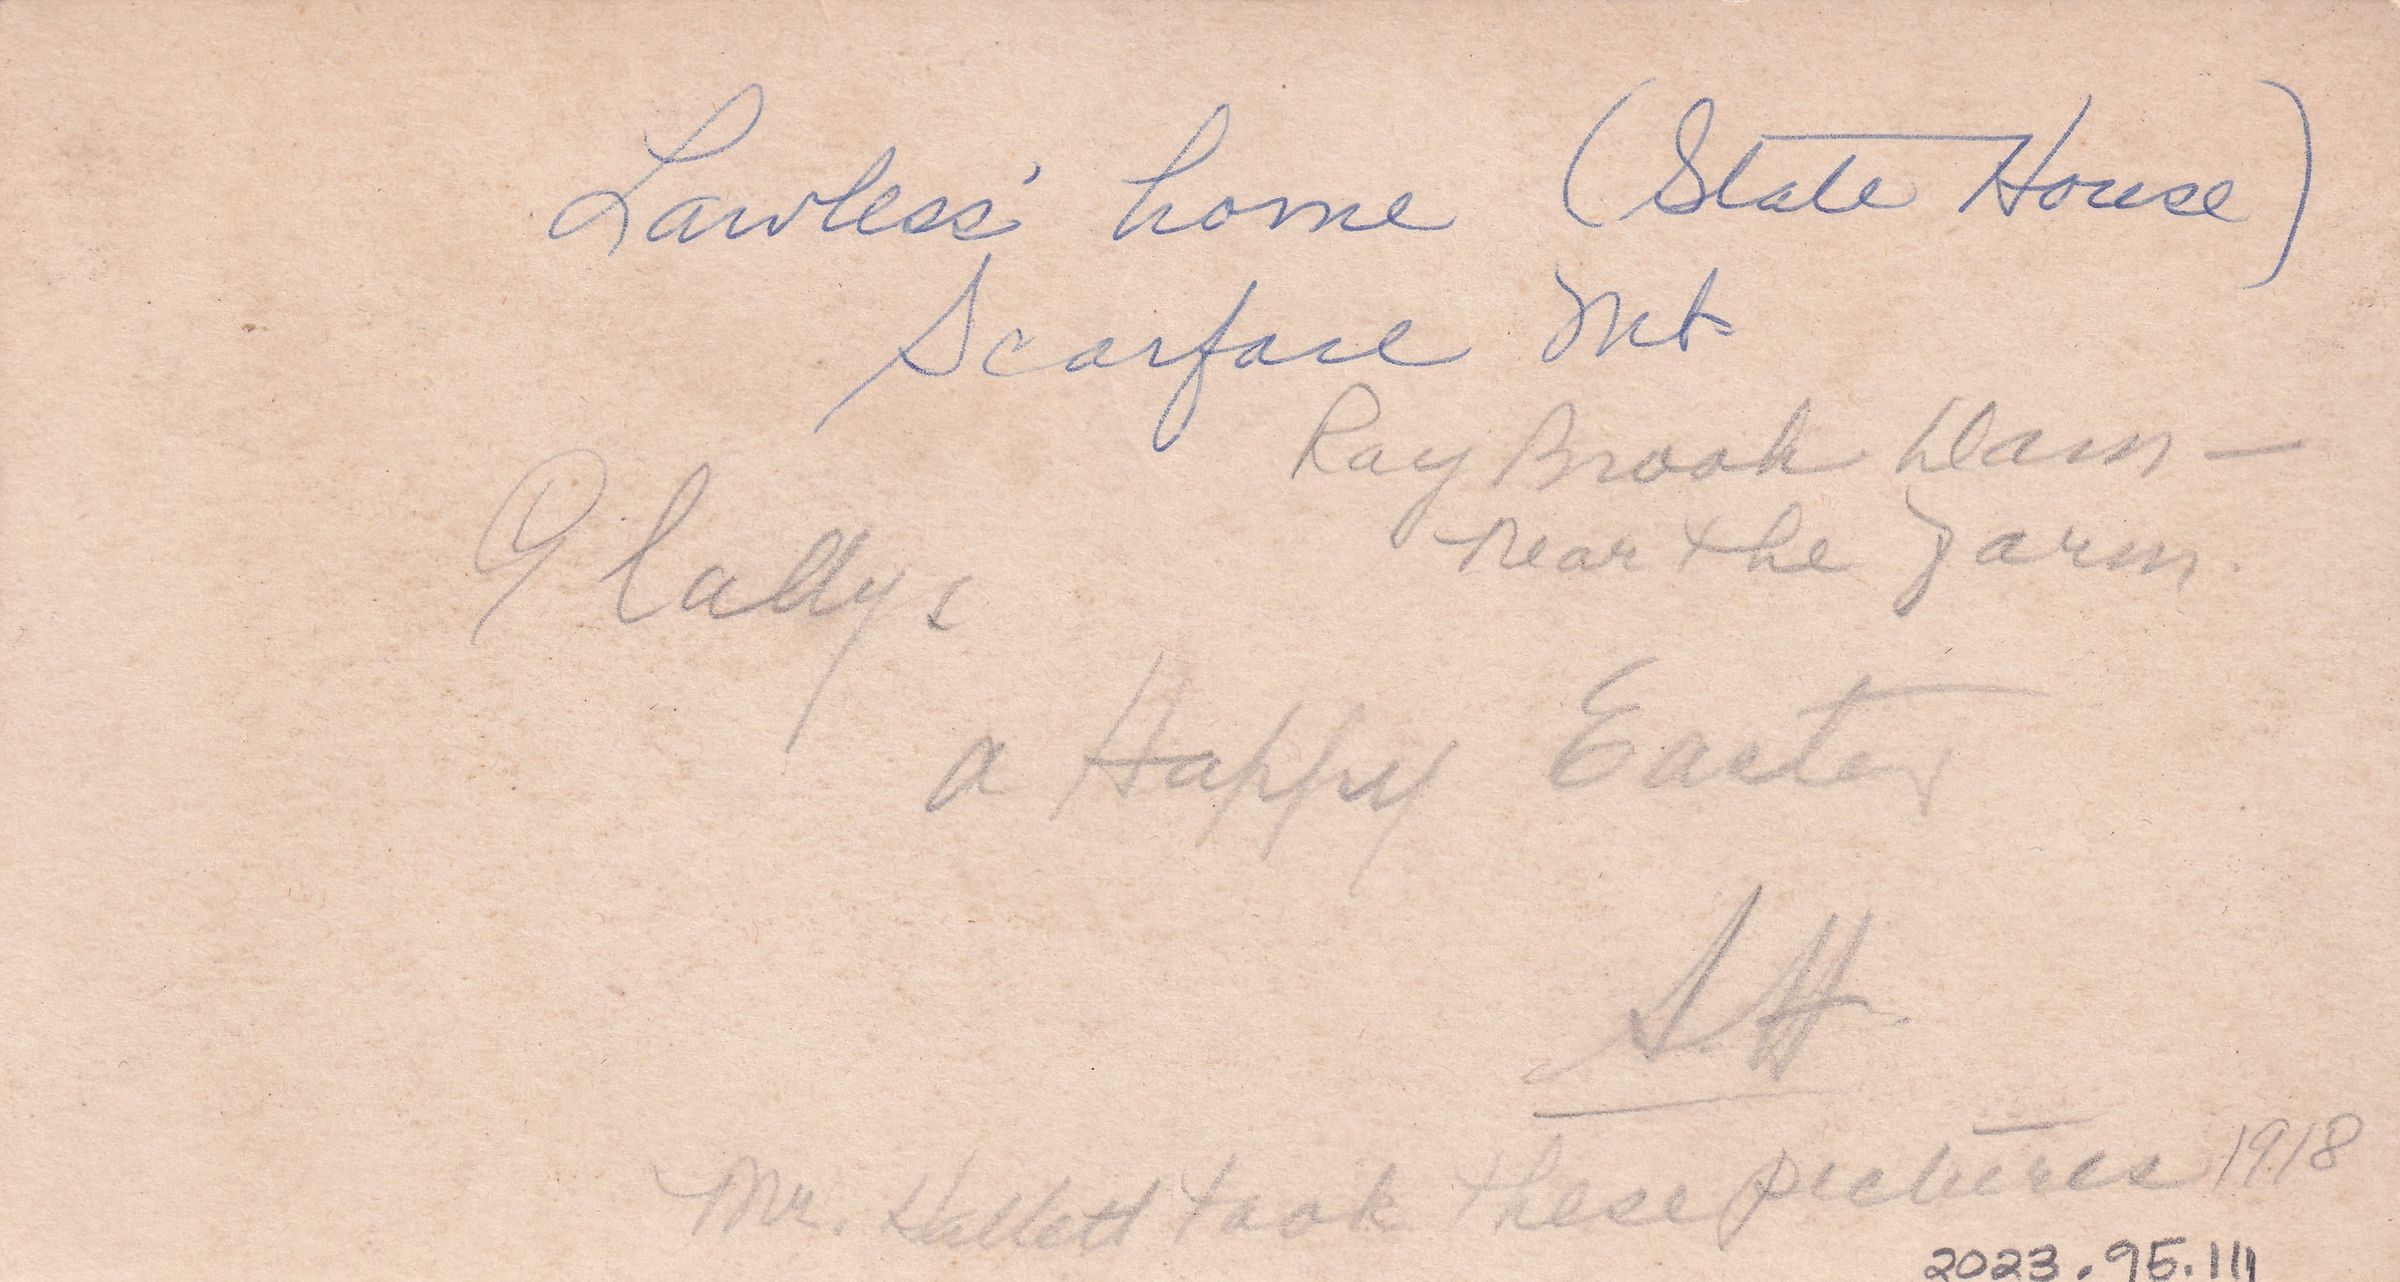 Lawless' home (State House)
Scarface Mt
Ray Brook Dam —
near the Farm.
Gladys
a Happy Easter
S.H.
Mr. Hallett took these pictures 1918
2023.95.111